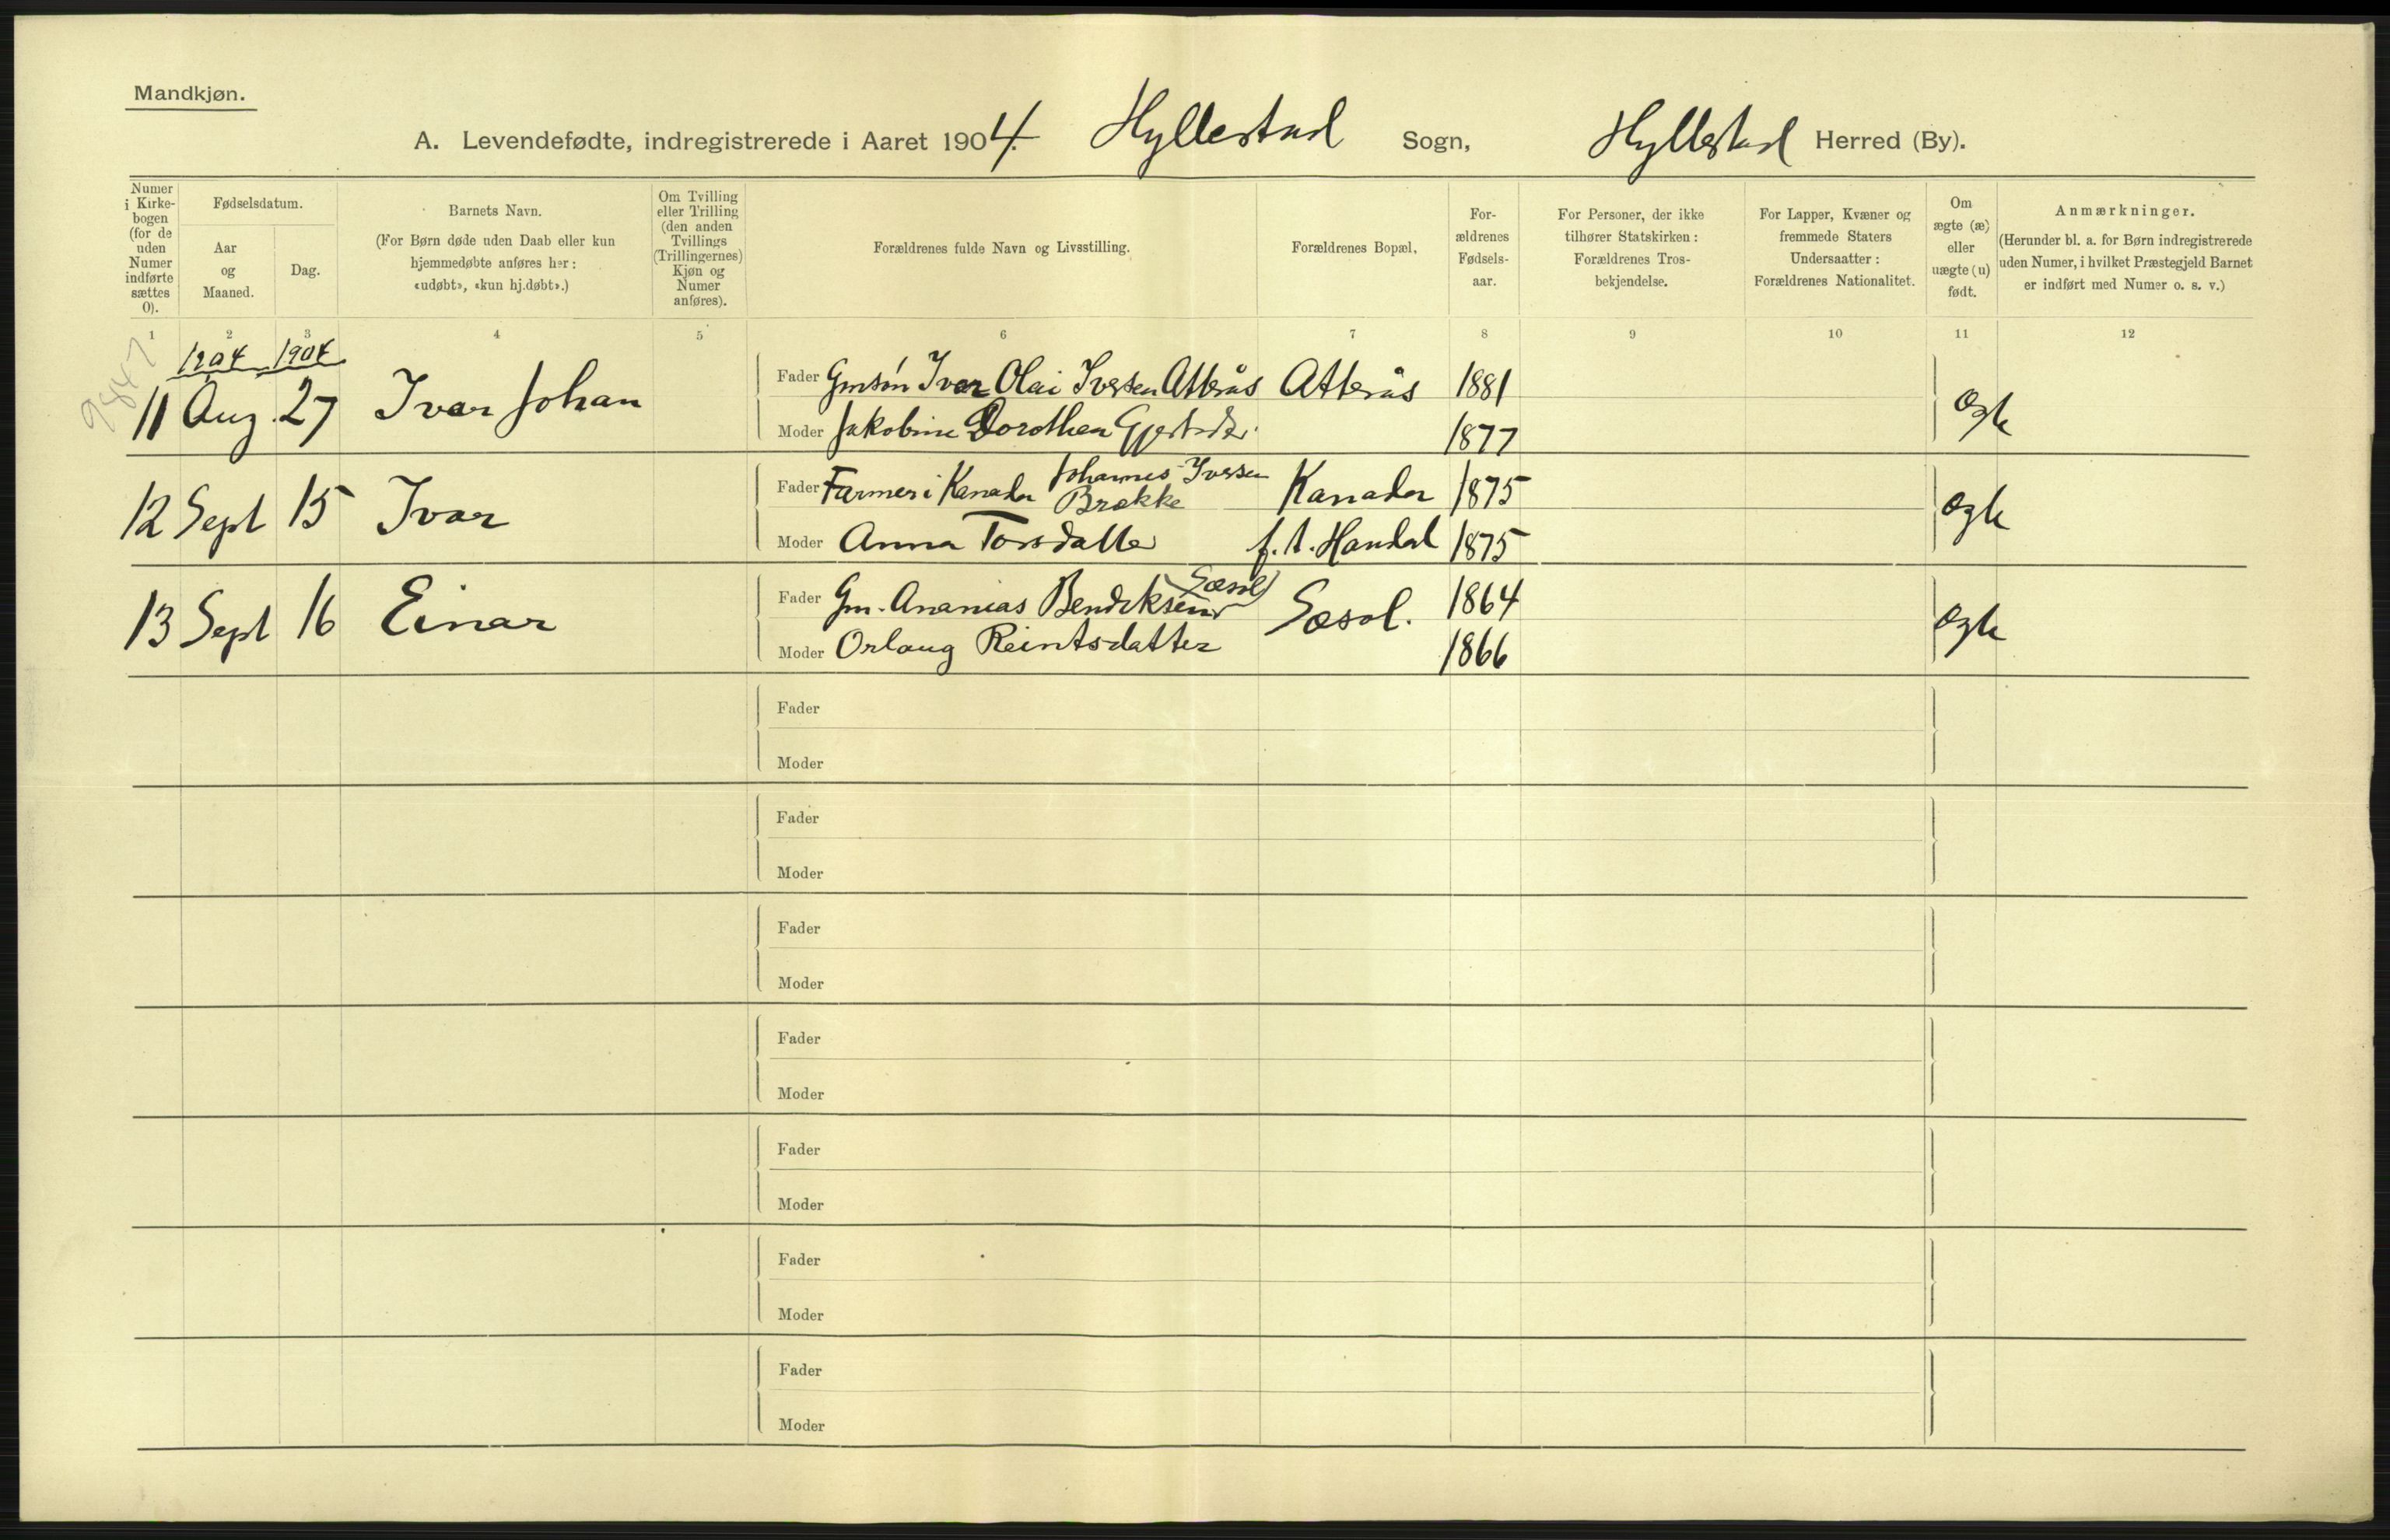 Mandkjøn.
A. Levendefødte, indregistrerede i Aaret 1904. Hyllestad Sogn, Hyllestad Herred (By).
Numer i Kirkebogen (for de uden Numer indførte sættes 0).
Fødselsdatum.
Aar og Maaned.
Dag.
Barnets Navn.
(For Børn døde uden Daab eller kun hjemmedøbte anføres her: «udøbt», «kun hj.døbt».)
Om Tvilling eller Trilling (den anden Tvillings (Trillingernes) Kjøn og Numer anføres).
Forældrenes fulde Navn og Livsstilling.
Forældrenes Bopæl,
Forældrenes Fødselsaar.
For Personer, der ikke tilhører Statskirken: Forældrenes Trosbekjendelse.
For Lapper, Kvæner og fremmede Staters Undersaatter: Forældrenes Nationalitet.
Om ægte (æ) eller uægte (u) født.
Anmærkninger.
(Herunder bl. a. for Børn indregistrerede uden Numer, i hvilket Præstegjeld Barnet er indført med Numer o. s. v.)
1 2 3 4 5 6 7 8 9 10 11 12
9847
1904 1904
11 Aug. 27 Ivar Johan Fader Gmsøn Ivar Olai Iversen Atterås Atterås 1881 Ægte
Moder Jakobine Dorothea Gjertsdtr. 1877
12 Sept 15 Ivar Fader Farmer i Kanada Johannes Iversen Brække Kanada 1875 Ægte
Moder Anna Torsdatter f. t. Handal 1875
13 Sept 16 Einar Fader Gm. Ananias Bendiksen Sæsol Sæsol. 1864 Ægte
Moder Orlaug Reintsdatter 1866
Fader
Moder
Fader
Moder
Fader
Moder
Fader
Moder
Fader
Moder
Fader
Moder
Fader
Moder